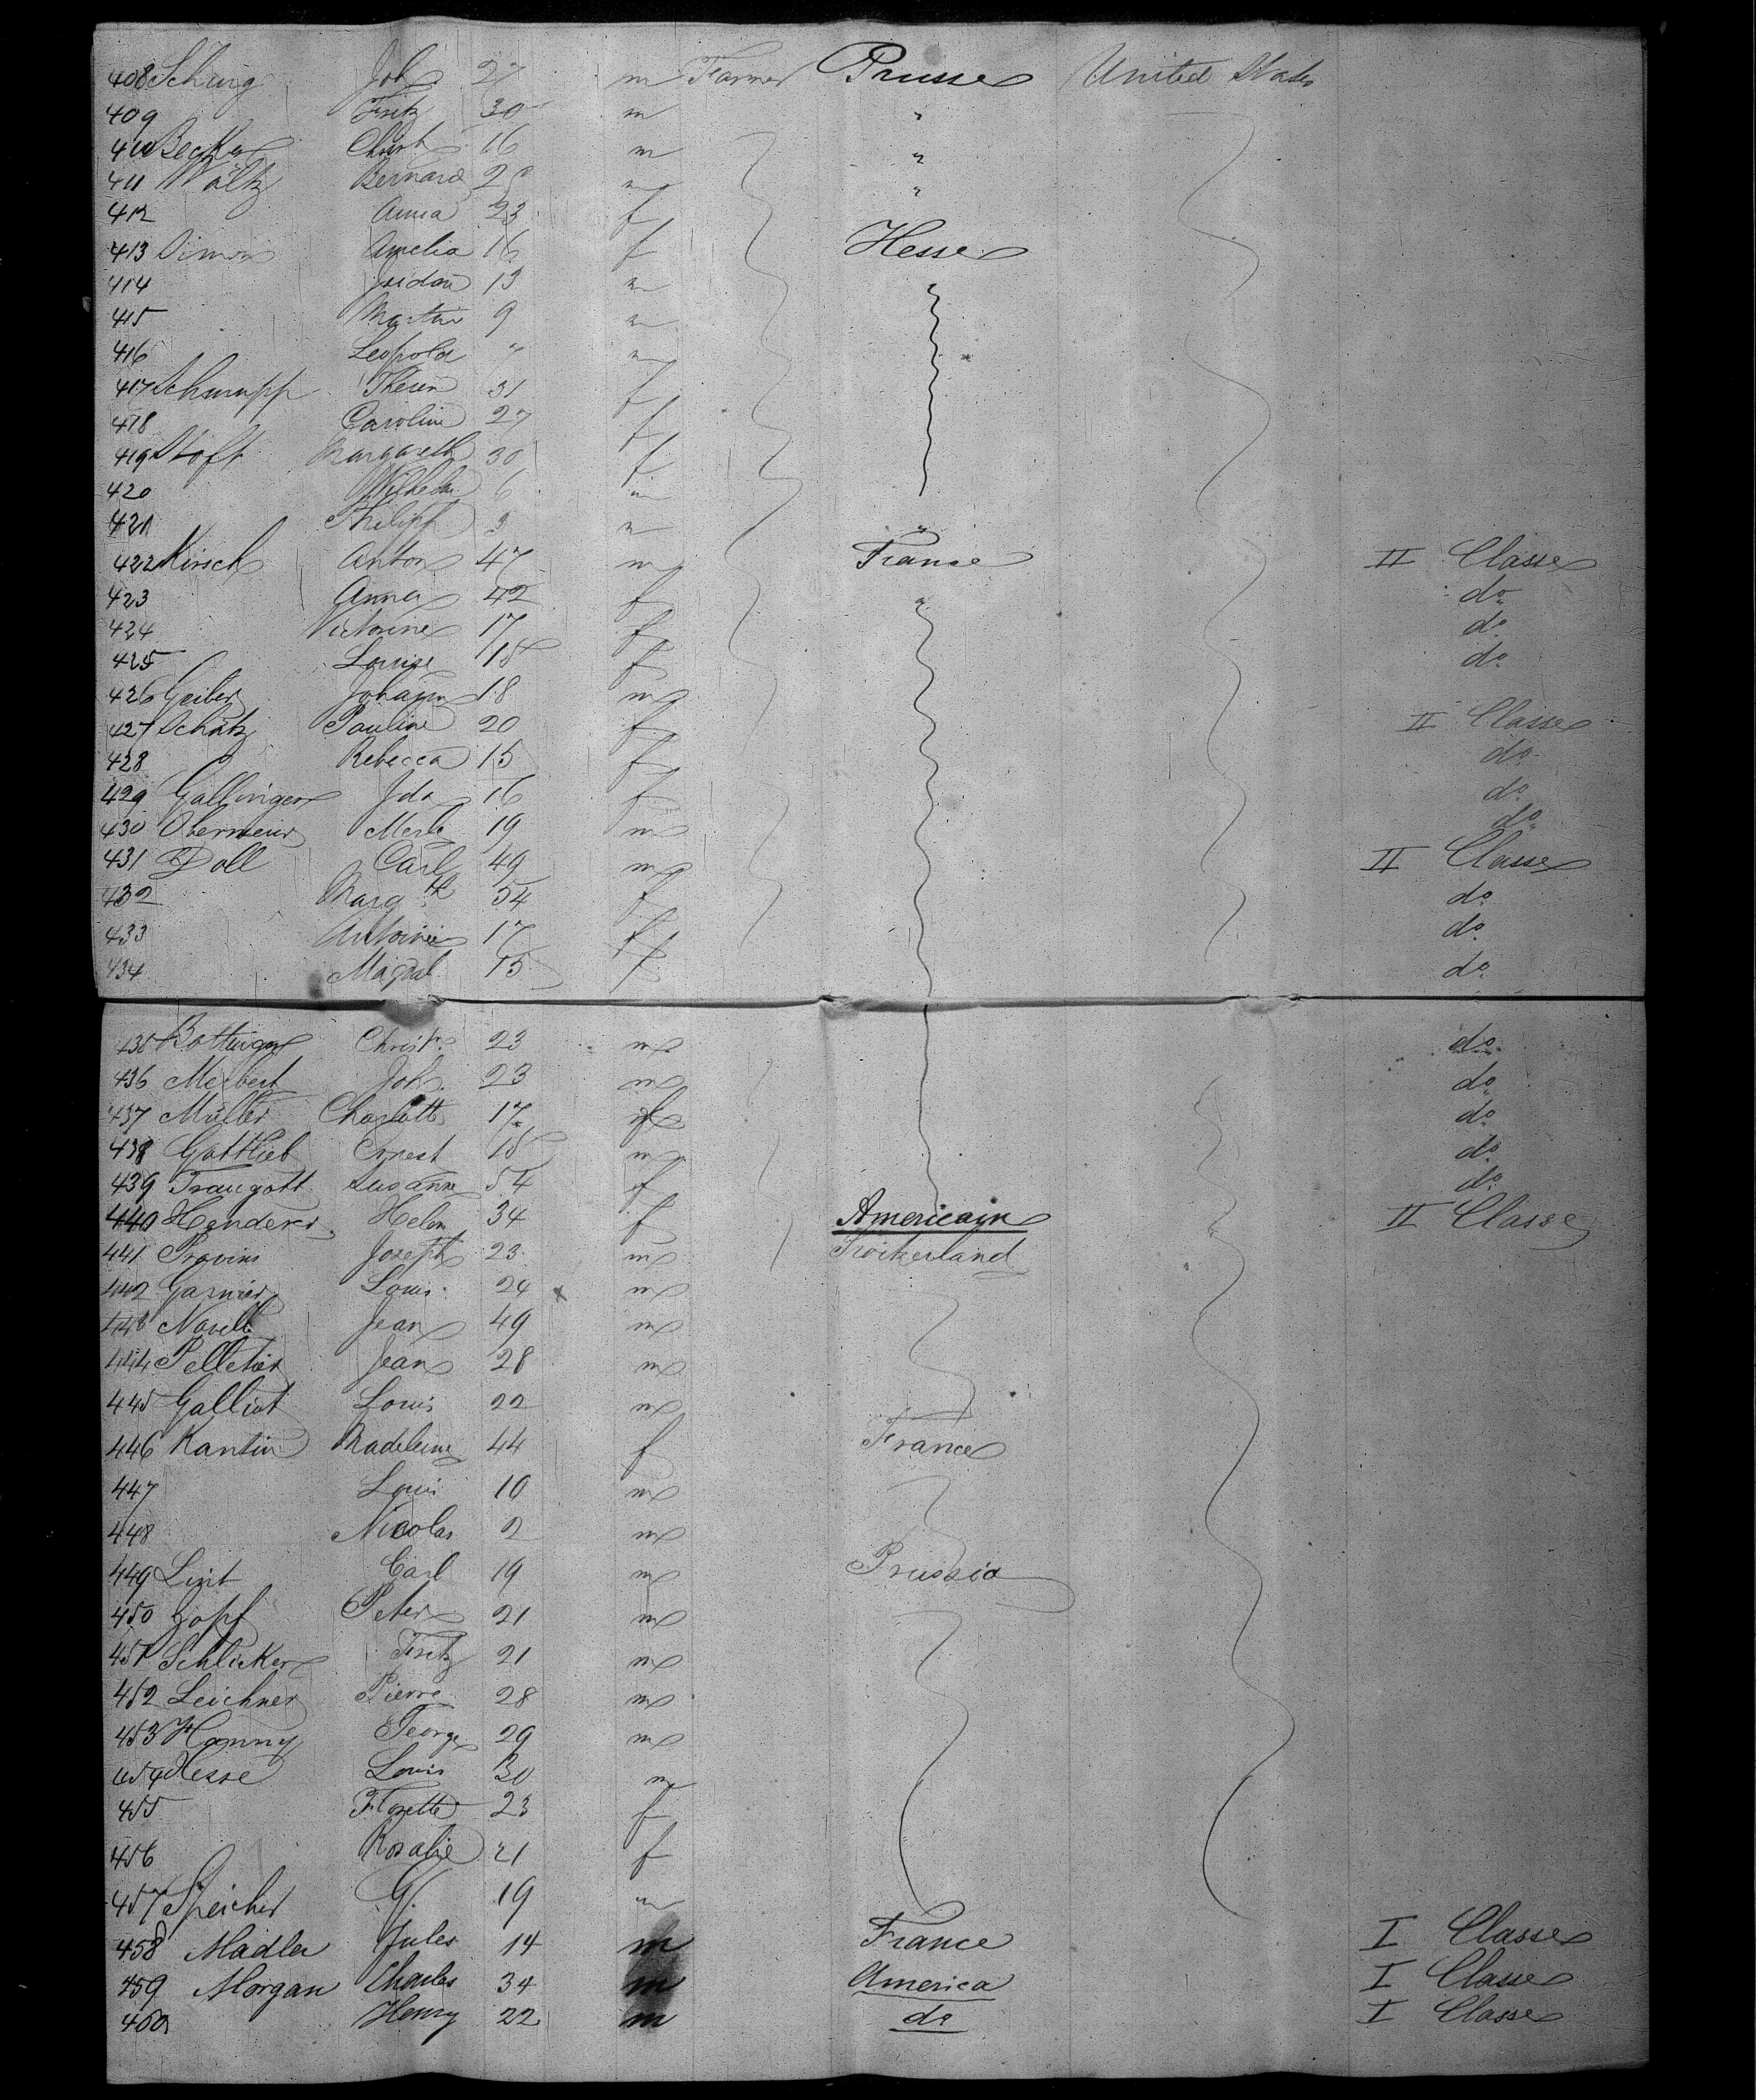 408 Schurig Joh 27 m Farmer Prusse United States
409 Fritz 30 m "
410 Becker Christ 16 m "
411 Wältz Bernard 28 m "
412 Anna 23 f
413 Simon Amelia 16 f Hesse
414 Isidor 13 m
415 Martin 9 m
416 Leopold " m
417 Schnupp 31 f
418 Caroline 27 f
419 Stoft Margareth 30 f
420 Wilhelm 6 m
421 Philipp 3 m "
422 Kirsch Anton 47 m France II Classe
423 Anna 42 f " do
424 Victorine 17 f do
425 Louise 15 f do
426 Geiler Johann 18 m
427 Schatz Pauline 20 f II Classe
428 Rebecca 15 f do
429 Gallinger Ida 16 f do
430 Obermeier 19 m do
431 Doll Carl 49 m II Classe
432 Marg th 54 f do
433 Antoine 17 f do
434 Magdal 15 f do
435 Christ. 23 m do
436 Merbert Joh. 23 m do
437 Müller Charlotte 17 f do
438 Gottlieb Ernest 15 m do
439 Traugott Susanne 54 f do
440 Henderer Helen 34 f Americain II Classe
441 Provins Joseph 23 m Switzerland
442 Garnier Louis 24 x m
443 Jean 49 m
444 Pelletier Jean 28 m
445 Galliot Louis 22 m
446 Kantin Madeleine 44 f France
447 Louis 10 m
448 Nicolas 2 m
449 Lint Carl 19 m Prussia
450 Zopf Peter 21 m
451 Schlicker Fritz 21 m
452 Leichner Pierre 28 m
453 Hanny George 29 m
454 Hesse Louis 30 m
455 Florette 23 f
456 Rosalie 21 f
457 Speicher G. 19 m
458 Madler Jules 14 m France I Classe
459 Morgan Charles 34 m America I Classe
460 Henry 22 m do I Classe